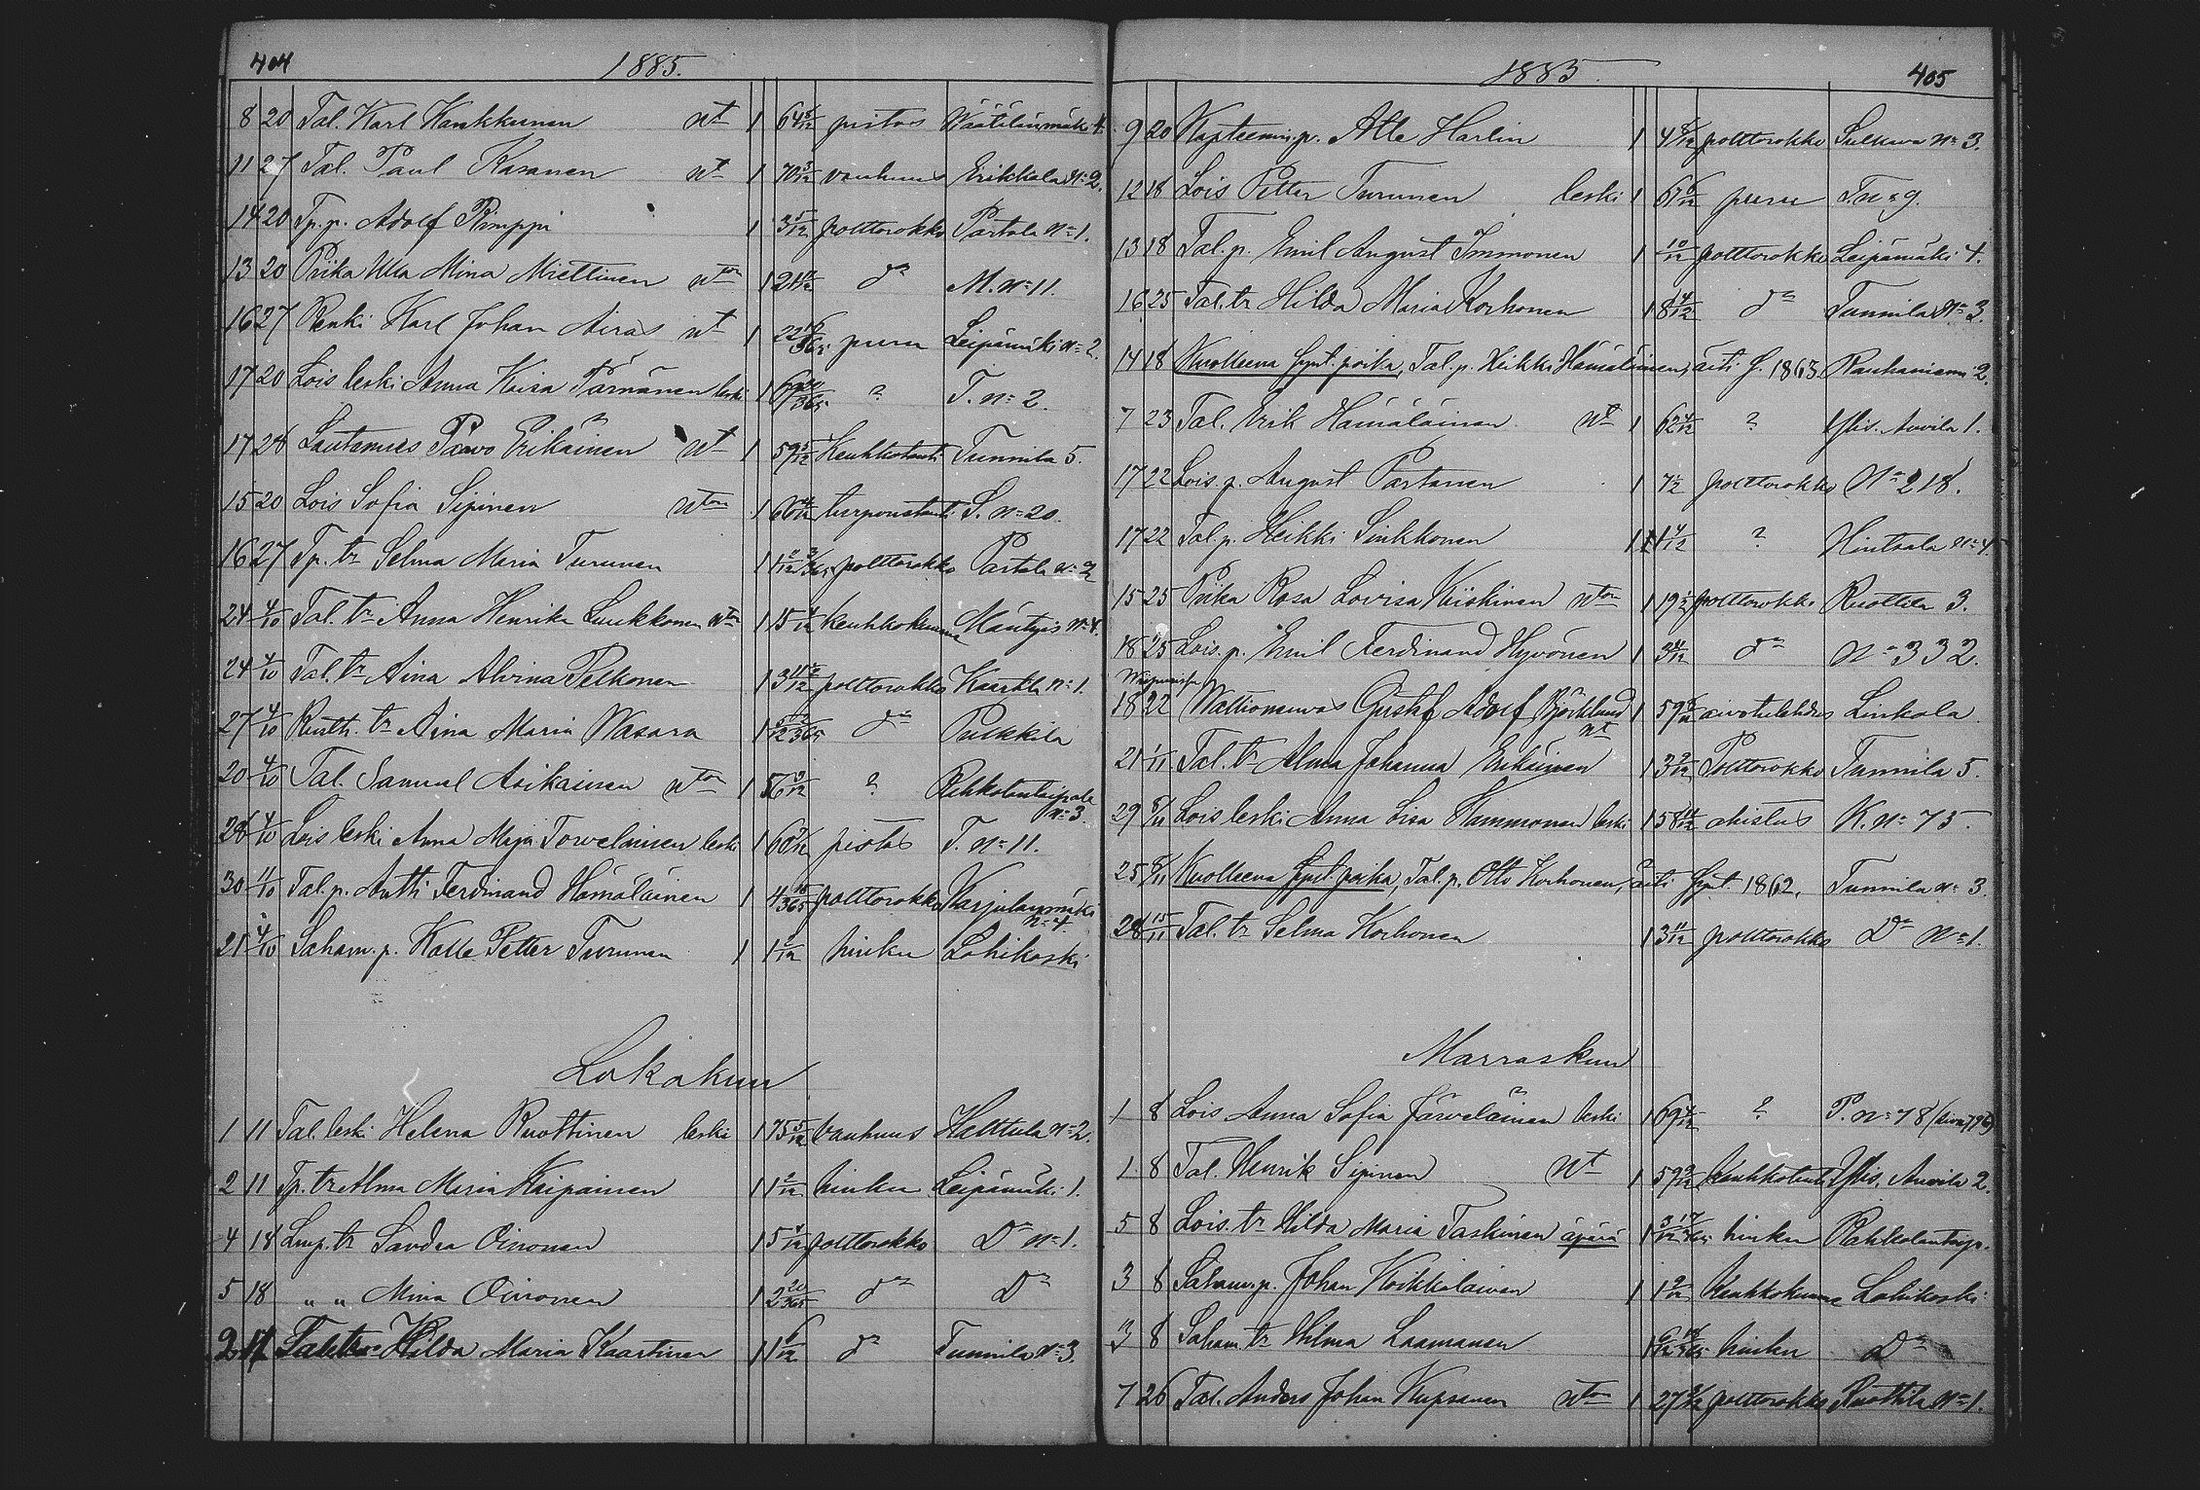 404 1885.
8 20 Tal. Karl Kankkunen nt 1 64 8/12 pistos Väätälänmäki 4.
11 27 Tal. Paul Kasanen nt 1 70 3/12 vanhuus Erikkala N:2.
14 20 Tp. p. Adolf Rimppi 1 3 5/12 polttorokko Partala N:1.
13 20 Piika Ulla Mina Miettinen nton 1 21 do M. N:11.
16 27 Renki Karl Johan Airas nt 1 22 /365 puru Leipämäki N:2.
17 20 Lois leski Anna Kaisa Pärnänen leski 1 /365 ? T. n:2.
17 28 Lautamies Paavo Erikäinen nt 1 59 /12 Keuhkotauti Tunnila 5.
15 20 Lois Sofia Sipinen nton 1 66 /12 turpoustauti S. n:20.
16 27 Tp. tr Selma Maria Turunen 1 1 polttorokko Partala n:2
24 4/10 Tal. tr Anna Henrika Luukkonen nton 1 15 4/12 keuhkokuume Mäntyis N:4.
24 4/10 Tal. tr Aina Alvina Pelkonen 1 3 polttorokko Kaartila n:1.
27 4/10 Rusth. tr Aina Maria Wasara 1 do Pulkkila
20 4/10 Tal. Samuel Asikainen nton 1 56 9/12 ? Rahkolantaipale n:3
28 4/10 Lois leski Anna Maja Torvelainen leski 1 60 /12 pistos T. n:11.
30 11/10 Tal. p. Antti Ferdinand Hämäläinen 1 4 /365 polttorokko Karjulanmäki n:4.
21 4/10 Saham. p. Kalle Petter Turunen 1 1 /12 hinku Lohikoski
Lokakuu
1 11 Tal. leski Helena Ruottinen leski 1 75 5/12 vanhuus Halttula n:2.
2 11 Tp. tr Alma Maria Kaipainen 1 1 /12 hinku Leipämäki 1.
4 18 Lmp. tr Sandra Oinonen 1 5 /12 polttorokko Do n:1.
5 18 " " Mina Oinonen 1 2 20/365 do Do
2 11 Tal. tr Hilda Maria Kaartinen 1 1 /12 do Tunnila N:3.
1885. 405
9 20 Kapteenin p. Atle Harlin 1 4 /12 polttorokko Sulkava N:3.
12 18 Lois Petter Turunen leski 1 61 6/12 puru T. n:9.
13 18 Tal. p. Emil August Immonen 1 10/12 polttorokko Leipämäki 4.
16 25 Tal. tr Hilda Maria Korhonen 1 8 4/12 do Tunnila N:3.
14 18 Kuolleena synt. poika, Tal. p. Heikki Hämäläinen, äiti s. 1863. Rauhaniemi 2.
7 23 Tal. Erik Hämäläinen nt 1 62 /12 ? Ylis. Auvila 1.
17 22 Lois. p. August Partanen 1 7 1/2 polttorokko N:218.
17 22 Tal. p. Heikki Sinkkonen 1 4/12 ? Hintsala N:4
15 25 Piika Rosa Lovisa Kiiskinen nton 1 19 1/2 polttorokko Ruottila 3.
18 25 Lois. p. Emil Ferdinand Hyvönen 1 3 /12 do N:332.
18 22 Waltioneuvos Gustaf Adolf Björklund nt 1 59 /12 aivotulehdus Linkola
21 1/11 Tal. tr Alma Johanna Erikäinen 1 3 /12 Polttorokko Tunnila 5.
29 8/11 Lois leski Anna Lisa Hammonen leski 1 58 /12 ahistus K. n:75.
25 8/11 Kuolleena synt. poika, Tal. p. Otto Korhonen, äiti synt. 1862. Tunnila n:3
28 15/11 Tal. tr Selma Korhonen 1 3 11/12 polttorokko Do N:1.
Marraskuu
1 8 Lois Anna Sofia Järveläinen leski 1 69 /12 ? P. n:78
1 8 Tal. Henrik Sipinen nt 1 59 /12 Keuhkotauti Ylis. Auvila 2.
5 8 Lois. tr Hilda Maria Taskinen äpärä 1 hinku Rahkolantaip.
3 8 Saham. p. Johan Koikkalainen 1 1 /12 Keuhkokuume Lohikoski
3 8 Saham. tr Hilma Laamanen 1 hinku Do
7 26 Tal. Anders Johan Kupsanen nton 1 27 /12 polttorokko Ruottila N:1.